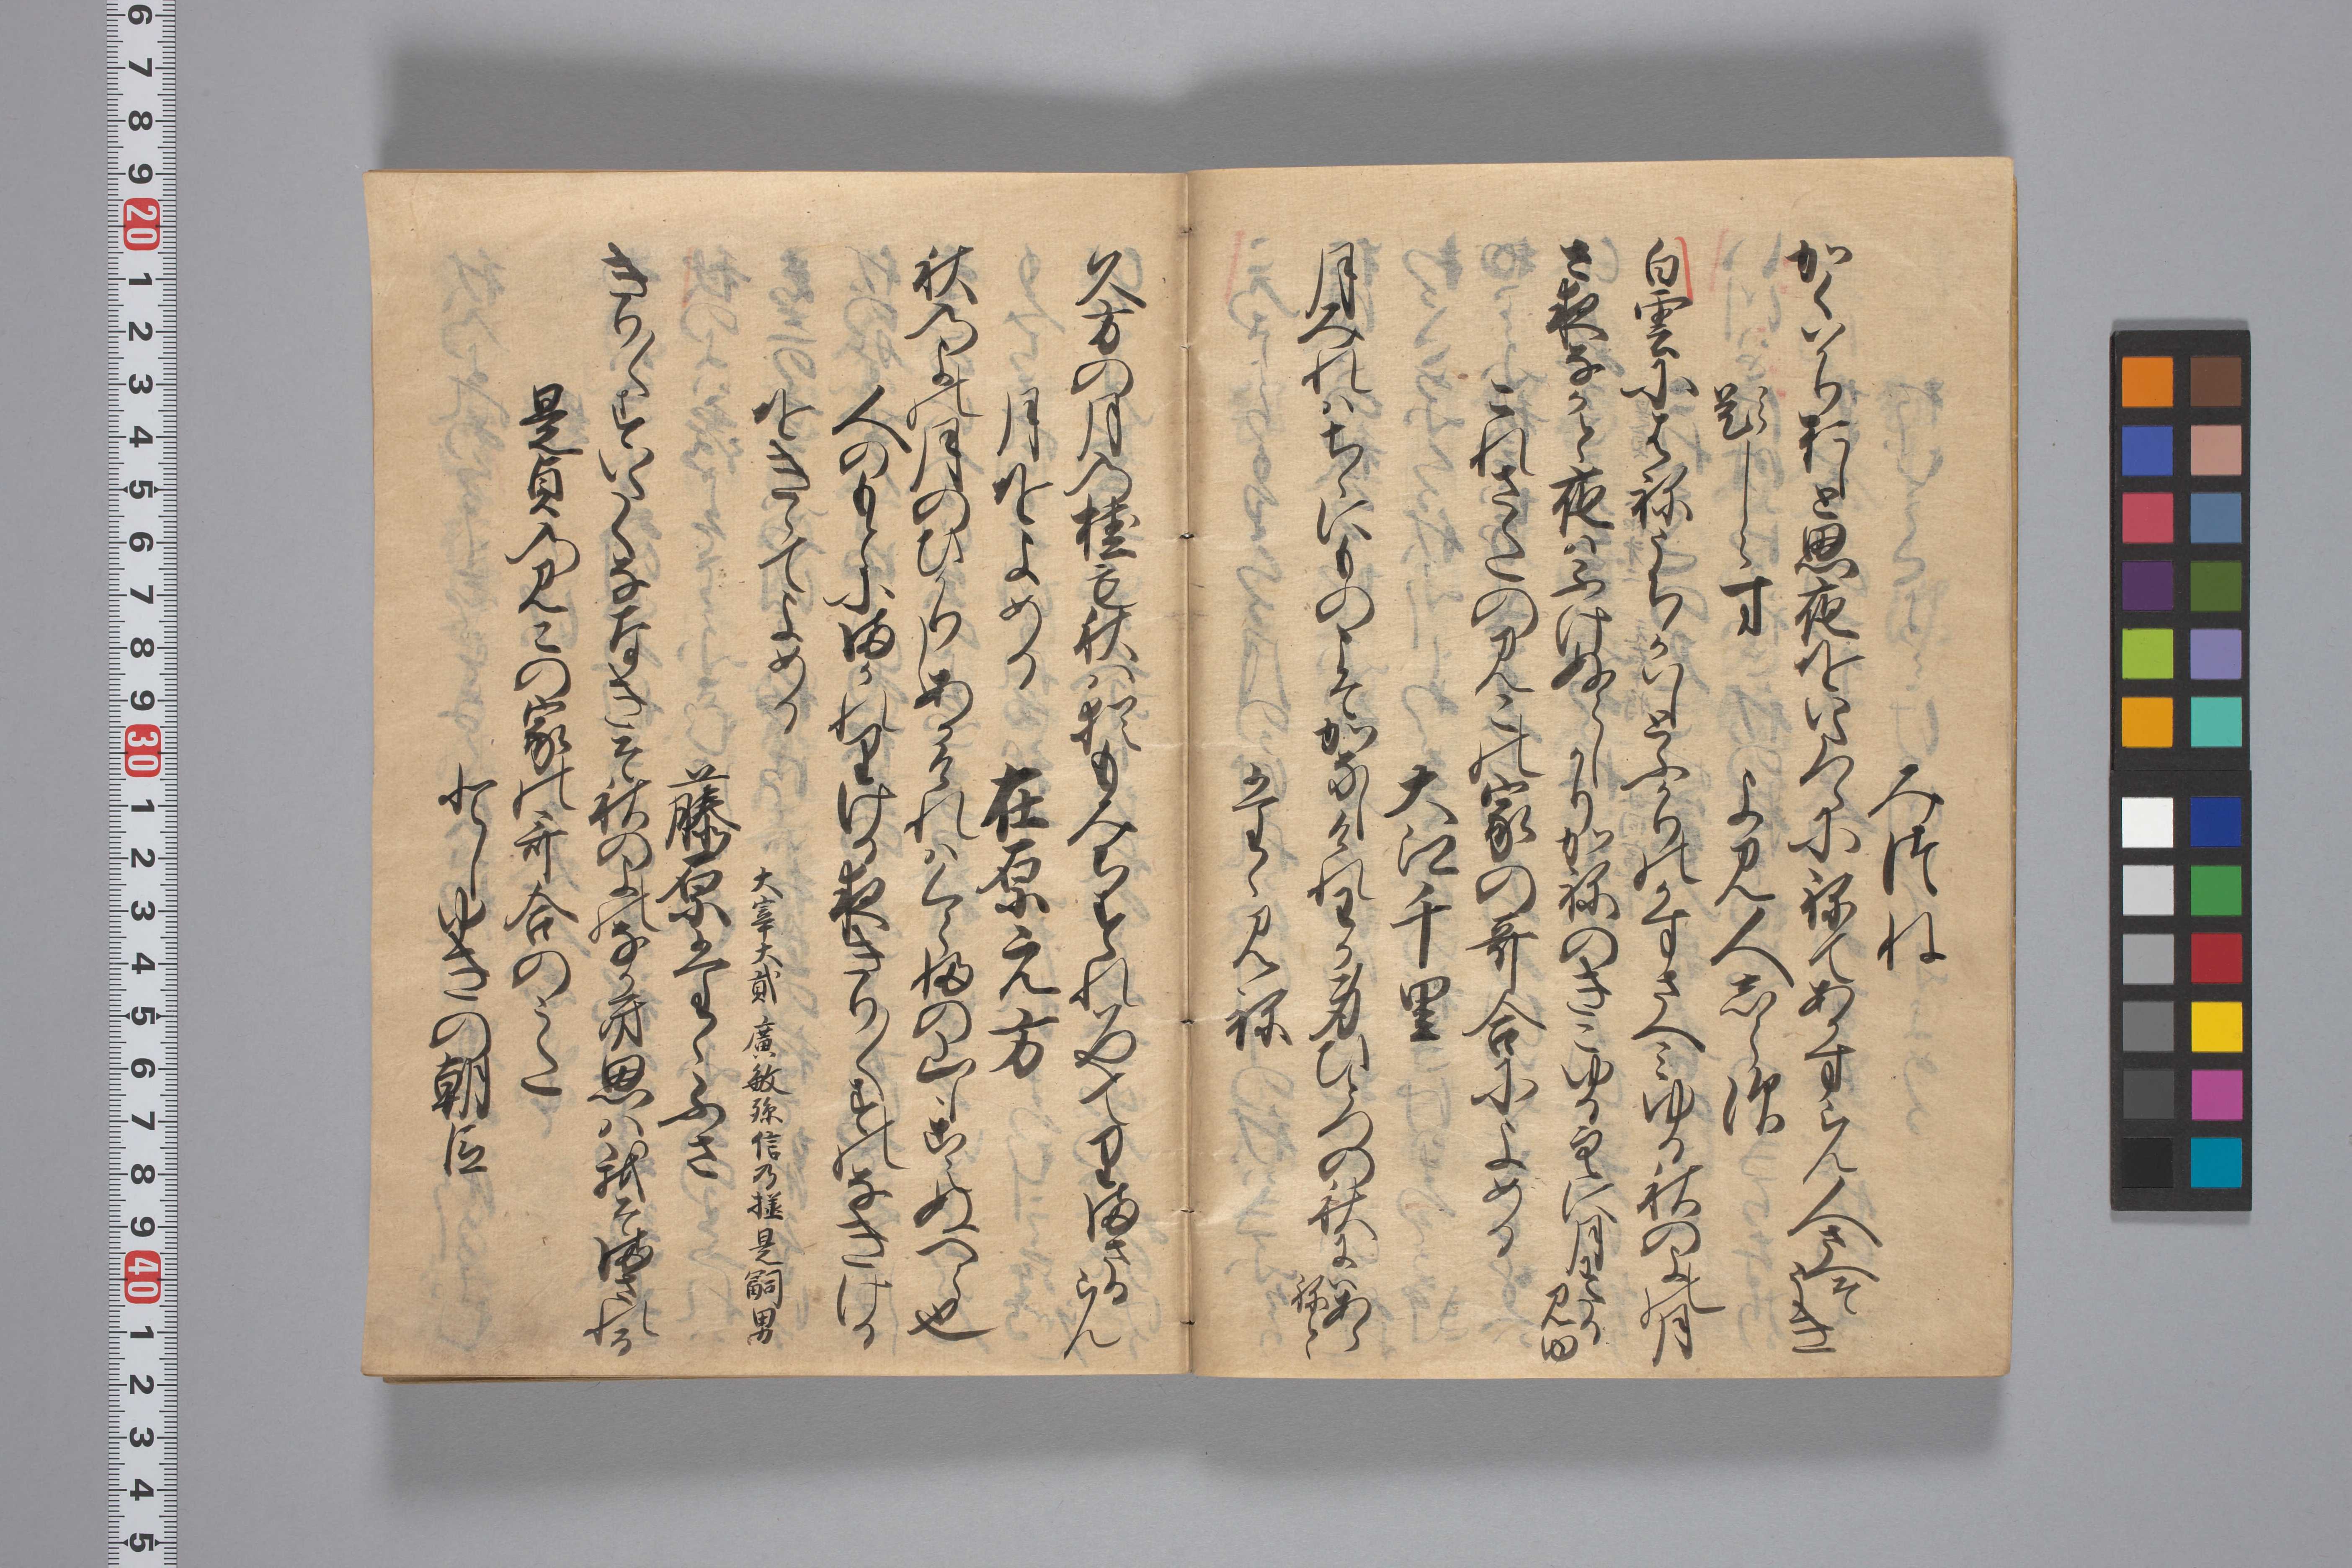 みつね
かくはかりおしと思夜をいたつらに祢てあかすらん人さへそうき
題しらす　よみ人しらす
白雲にはねうちかはしとふかりのかすさへみゆる秋のよの月
さ夜なかと夜はふけぬらしかり加祢のきこゆる空に月わたるみゆ
これさたのみこの家の哥合によめる
大江千里
月みれはちゝにものこそかなしけれわか身ひとつの秋にはあらねと
たゝみね
久方の月の桂も秋は猶もみちすれはやてりまさるらん
月をよめる
在原元方
秋のよの月のひかりしあかけれはくらふの山もこえぬへら也
人のもとにまかれりける夜きり／＼すのなきける
をきゝてよめる
大宰大貳廣敏孫信乃掾是嗣男
藤原たゝふさ
きり／＼すいたくなゝきそ秋のよのなかき思は我そまされる
是貞のみこの家の哥合のうた
としゆきの朝臣